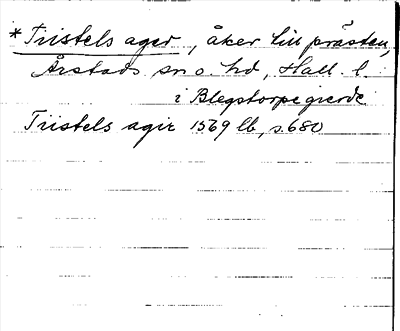 *Tristels ager, åker till prästen,
Årstads sn o. hd, Hall. l.
i Blegstorpe gierde
Tristels agir 1569 lb, s. 680